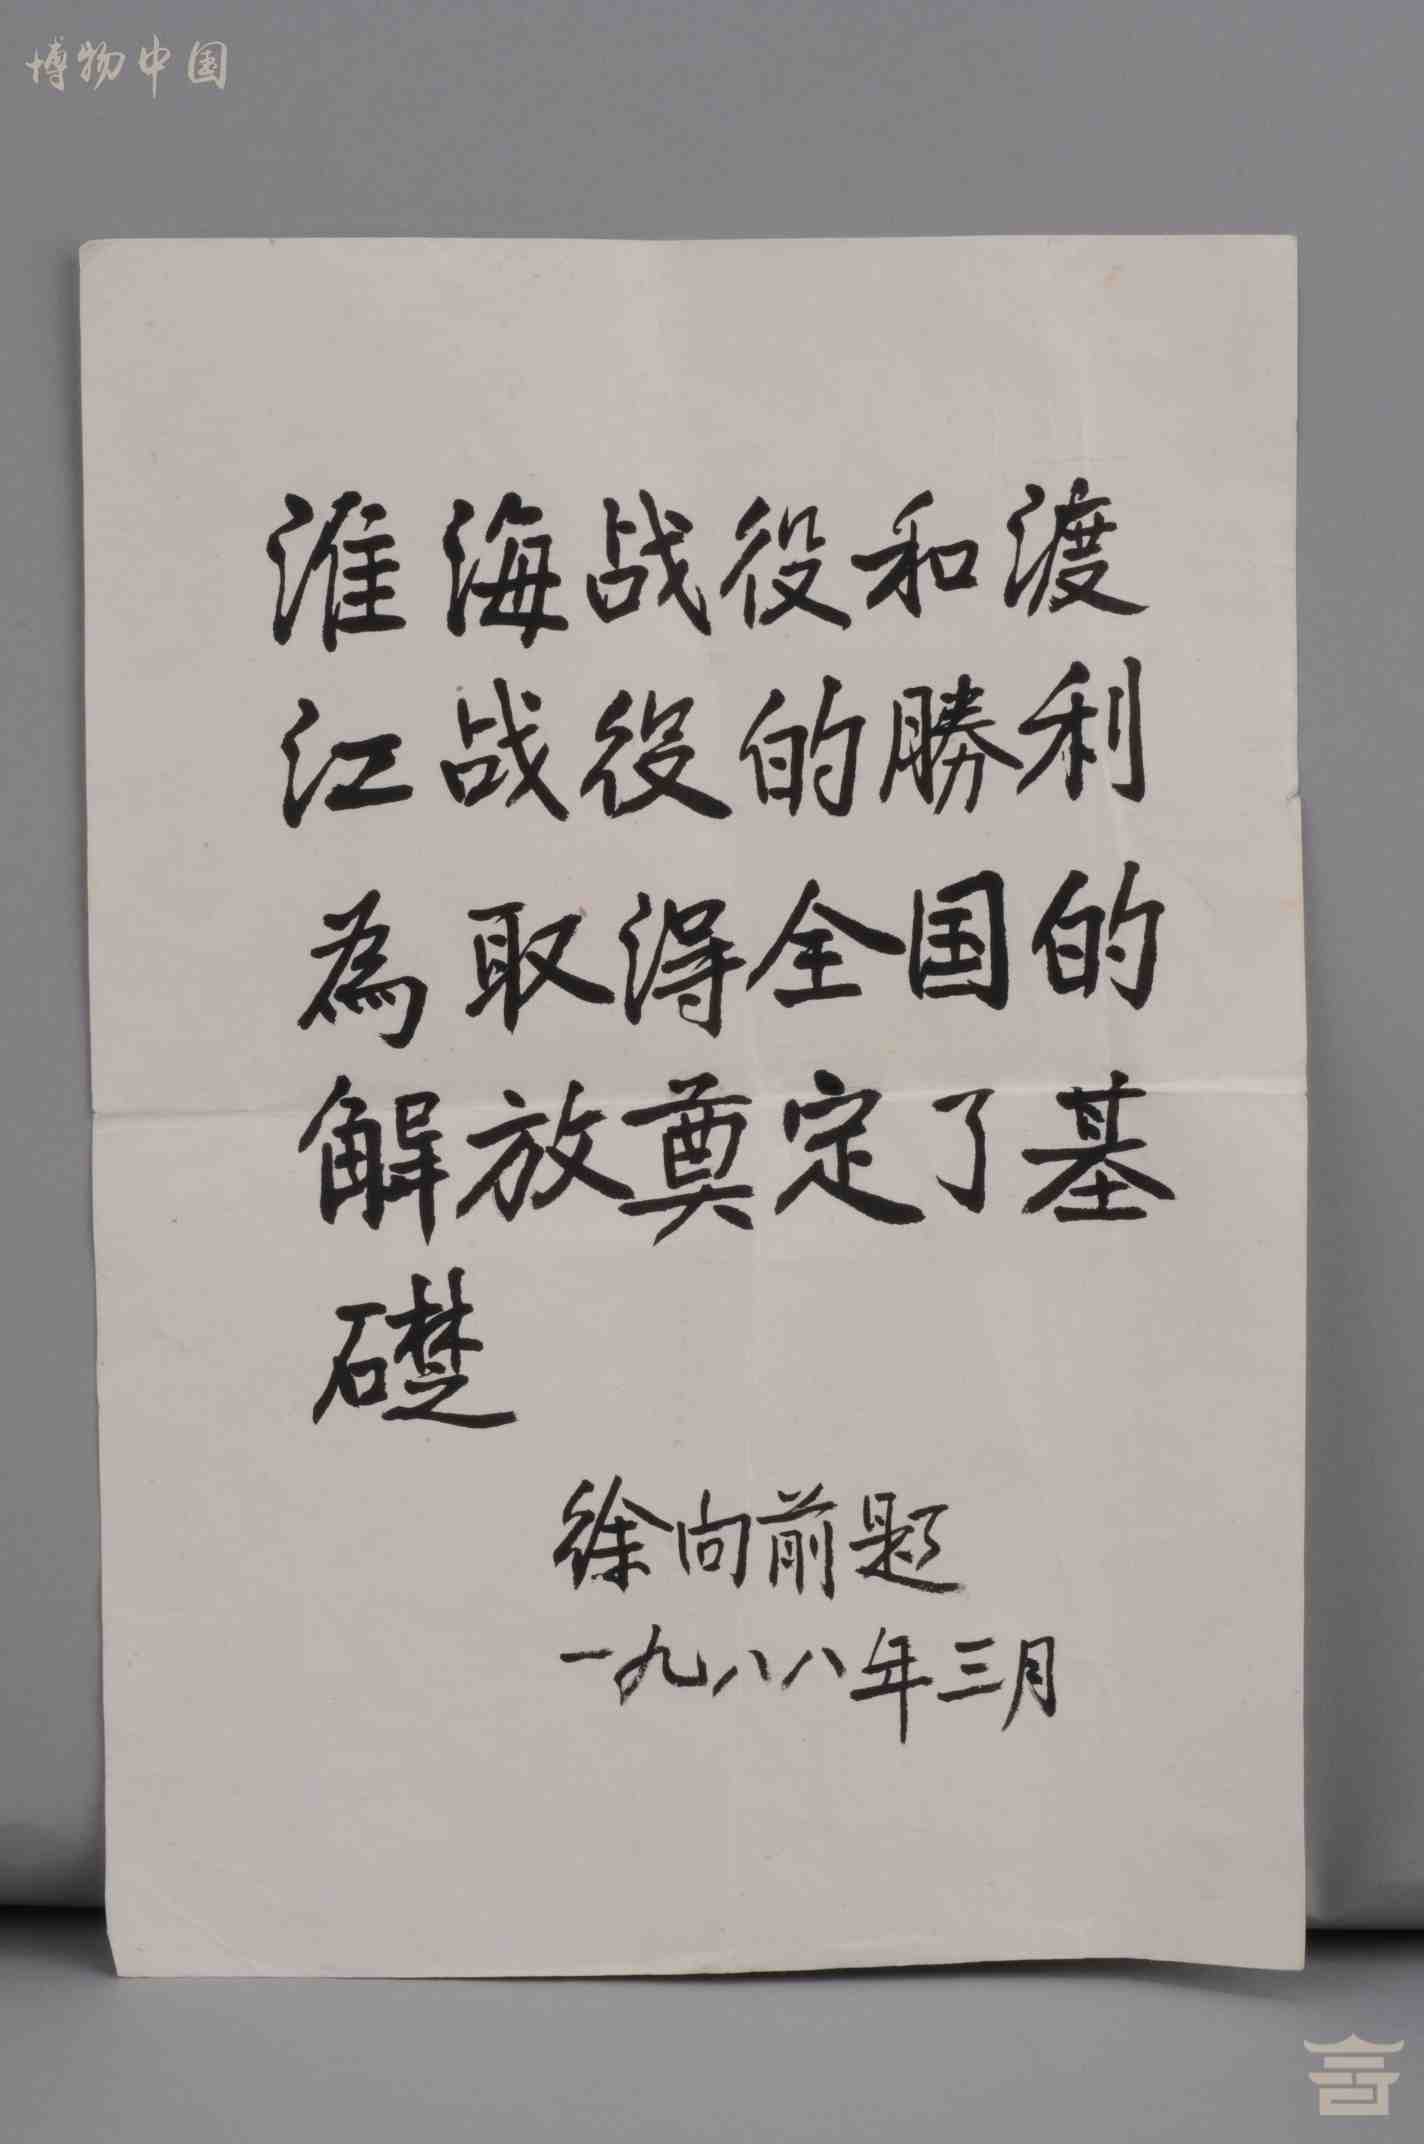 博物中国
淮海战役和渡
江战役的勝利
為取得全国的
解放奠定了基
礎
徐向前题
一九八八年三月